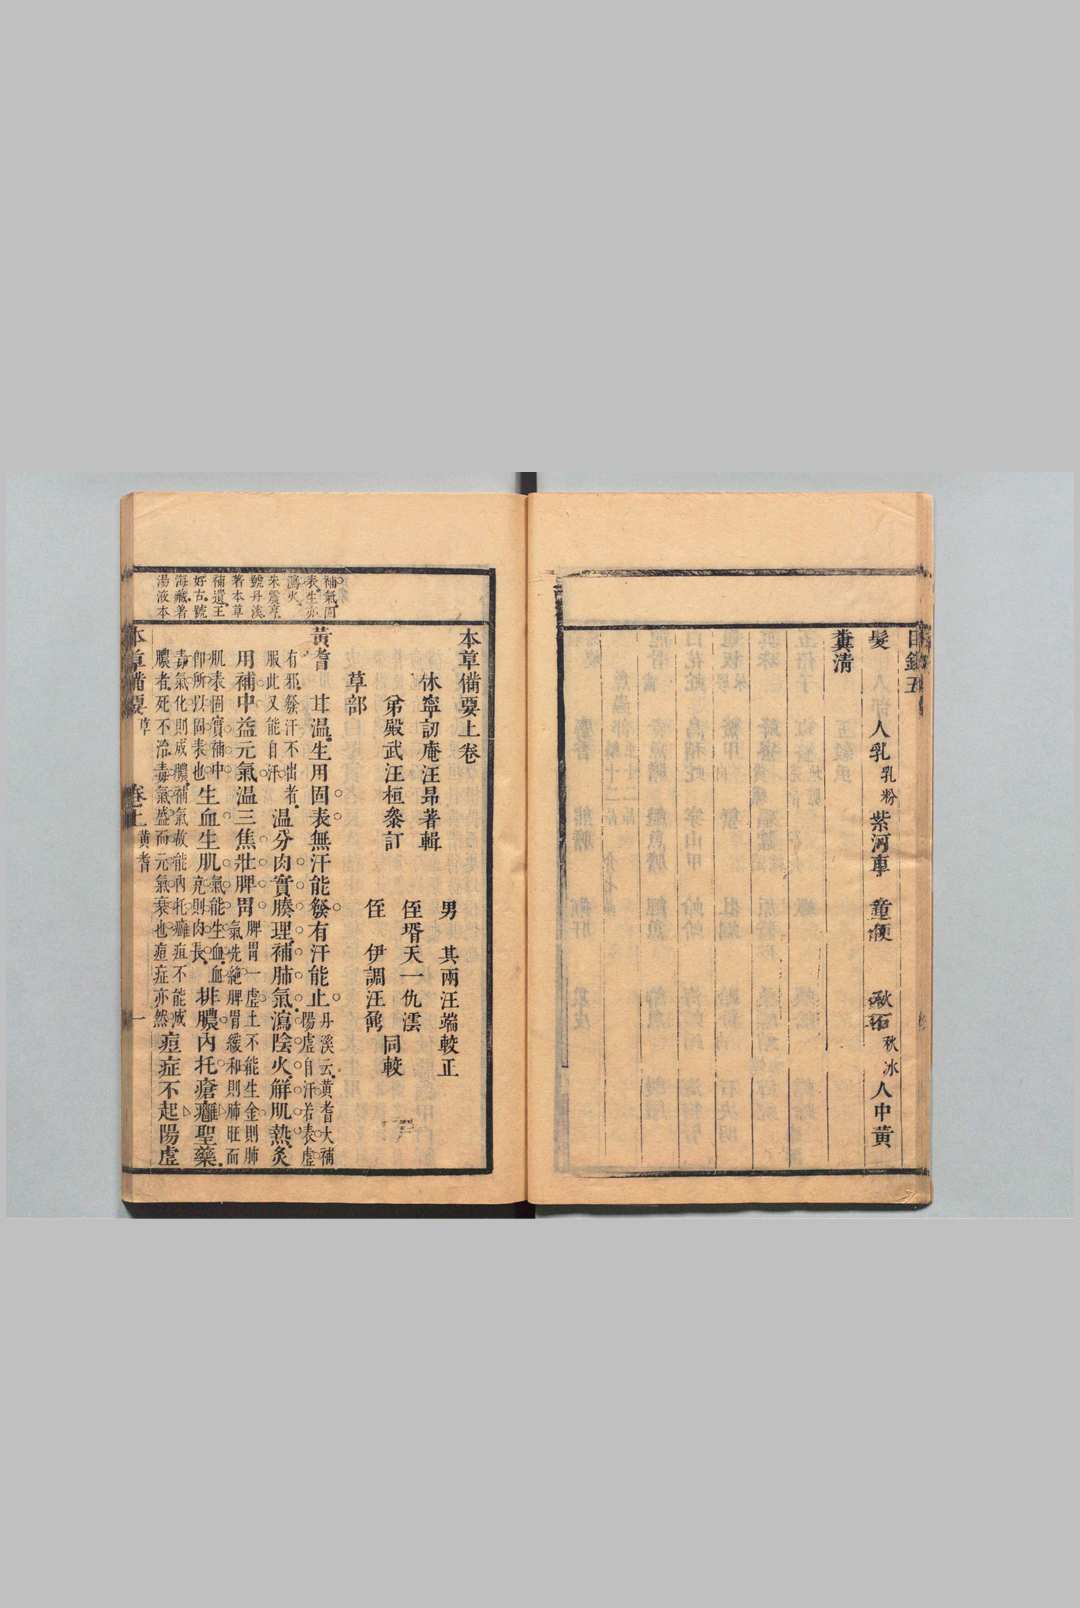 髮　人乳乳粉　紫河車　童便　秋石秋冰　人中黃
糞清
本草備要上卷
休寧訒庵汪昂著輯
弟殿武汪桓叅訂
男　其兩汪端較正
侄壻天一仇澐
侄　伊調汪　同較
草部
補氣固
表生亦
瀉火
黃耆　甘溫生用固表無汗能發有汗能止丹溪云黃耆大補
陽虛自汗若表虛
有邪發汗不出者
服此又能自汗
溫分肉實腠理補肺氣瀉陰火解肌熱炙
用補中益元氣溫三焦壯脾胃脾胃一虛土不能生金則肺
氣先絕脾胃緩和則肺旺而
肌表固實補中
卽所以固表也
生血生肌氣能生血血
充則肉長
排膿內托瘡癰聖藥
毒氣化則成膿補氣故能內托癰疽不能成
膿者死不治毒氣盛而元氣衰也痘症亦然
痘症不起陽虛
朱震亨
號丹溪
著本草
補遺王
好古號
海藏著
湯液本
本草備要　草　卷上　黃耆　一